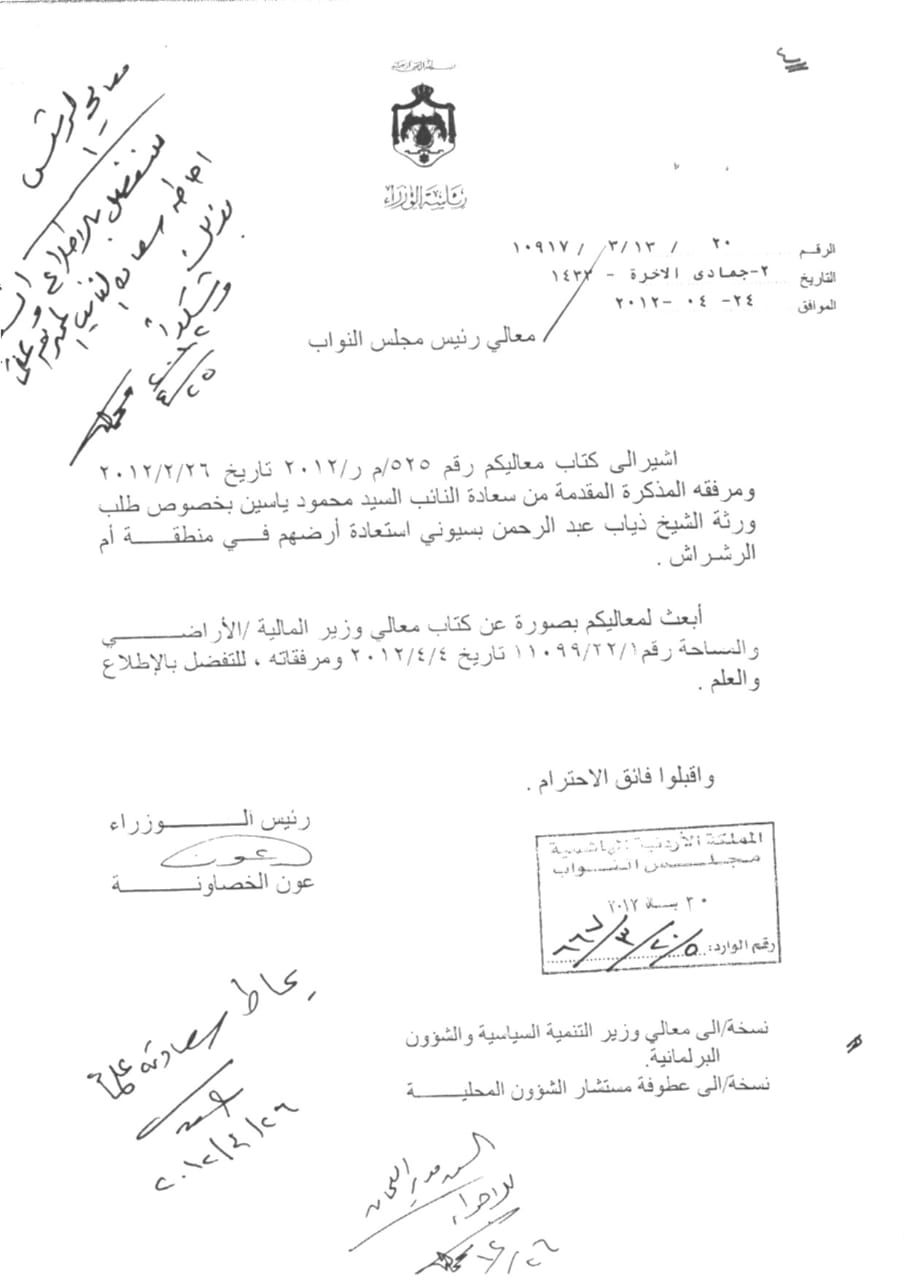 رئاسة الوزراء
الرقم ٢٠ / ٣/١٣/ ١٠٩١٧
التاريخ ٢-جمادى الاخرة - ١٤٣٣
الموافق ٢٤- ٠٤ -٢٠١٢
معالي رئيس مجلس النواب
اشير الى كتاب معاليكم رقم ٥٢٥/م ر/٢٠١٢ تاريخ ٢٠١٢/٢/٢٦
ومرفقه المذكرة المقدمة من سعادة النائب السيد محمود ياسين بخصوص طلب
ورثة الشيخ ذياب عبد الرحمن بسيوني استعادة أرضهم فـي منطقـة أم
الرشراش .
أبعث لمعاليكم بصورة عن كتاب معالي وزير المالية /الأراضـي
والمساحة رقم ١١٠٩٩/٢٢/١ تاريخ ٢٠١٢/٤/٤ ومرفقاته ، للتفضل بالإطلاع
والعلم .
واقبلوا فائق الاحترام .
رئيس الـوزراء
عون
عون الخصاونـة
المملكة الأردنية الهاشمية
مجلـس النـواب
رقم الوارد:
نسخة/الى معالي وزير التنمية السياسية والشؤون
البرلمانية.
نسخة/الى عطوفة مستشار الشؤون المحليـة
يحاط سعادته علماً
٢٠١٢/٤/٢٦
السيد مدير اللجان
للاجراء